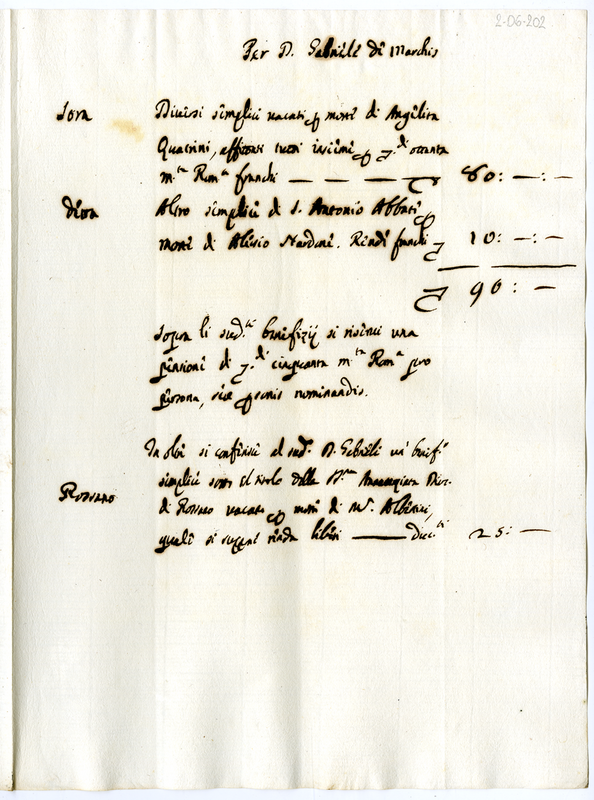 2-06-202
Per D. Gabriele di Marchis
Sora Diversi semplici vacati p morte di
Quatrini, affittati tutti insieme p ottanta
m.ta Rom.a franchi — — — — 80: —:—
Altro semplice di S. Antonio Abbate
morte di Alesio Nardoni. Rende franchi 10: —:—
90: —
Sopra li sud.ti benefizij si riservi una
pensione di cinquanta m.ta Rom.a pro
persona, sive personis nominandis.
In oltre si conferisce al sud.o D. Gabriele un benef.o
semplice sotto il titolo della
Rossano di Rossano vacato p morte di
quale si suppone renda liberi —— duc.ti 25: —